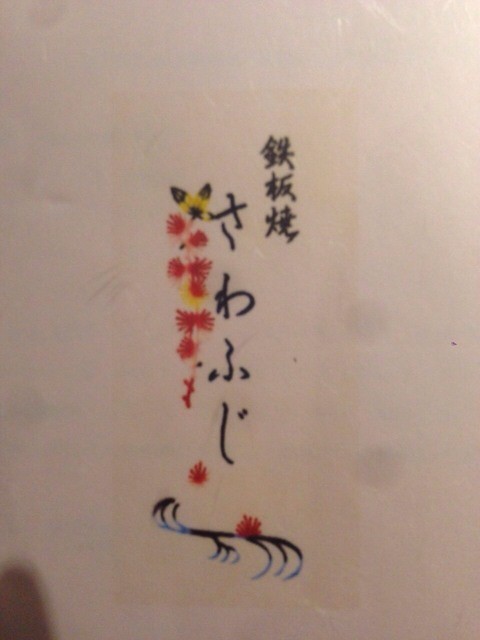 鉄板焼
さわふじ